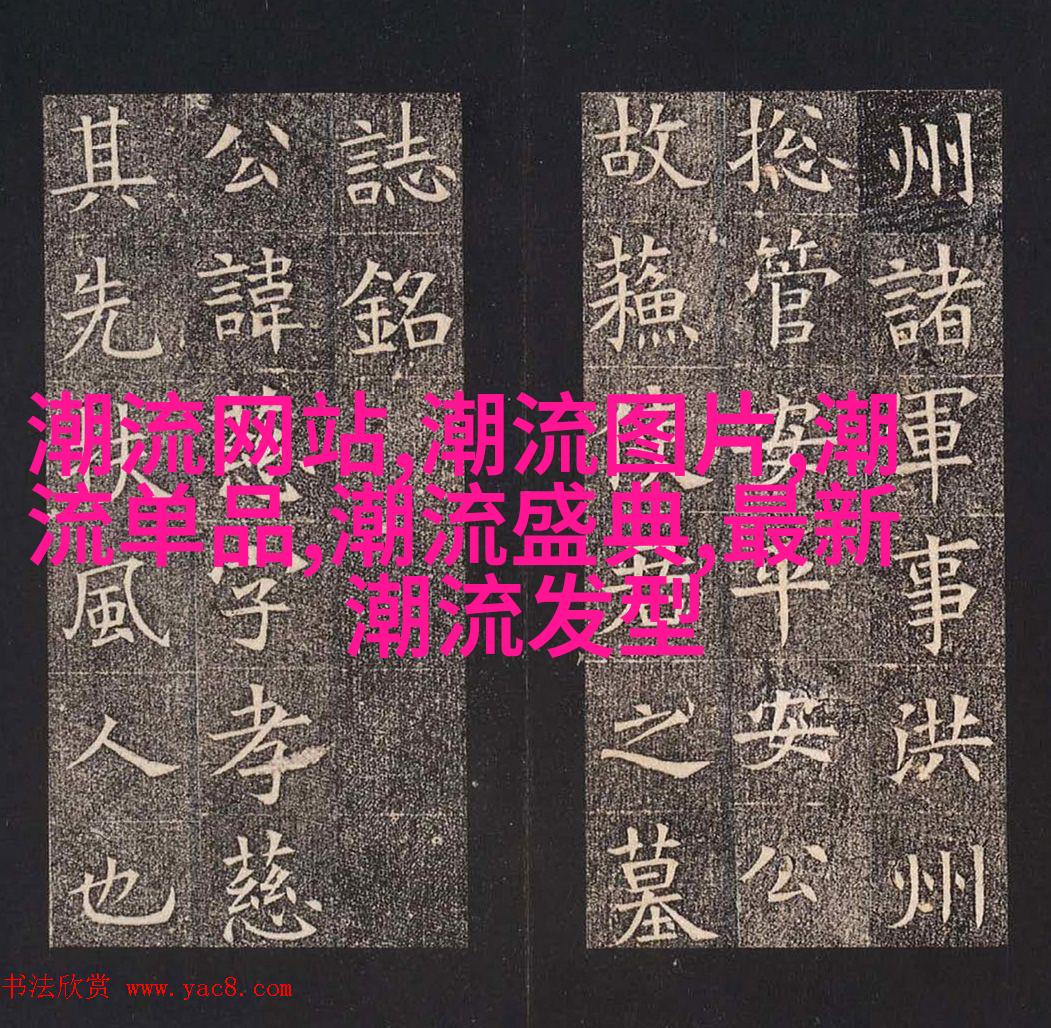 州諸軍事洪州
捴管安平安公
故蘓使君之墓
誌銘
公諱慈字孝慈
其先扶風人也
潮流网站,潮流图片,潮
流单品,潮流盛典,最新
潮流发型
书法欣赏 www.yac8.com